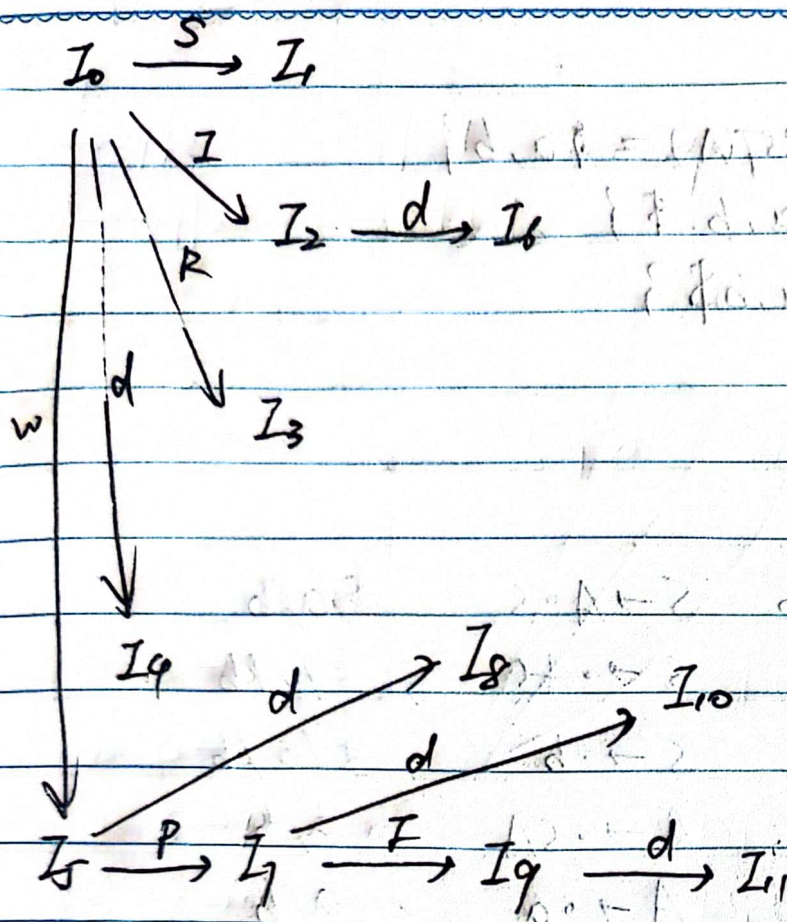 I₀ —S→ I₁
I
I₂ —d→ I₆
R
d
w
I₃
I₄
d
I₈
I₁₀
d
I₅ —P→ I₇ —F→ I₉ —d→ I₁₁